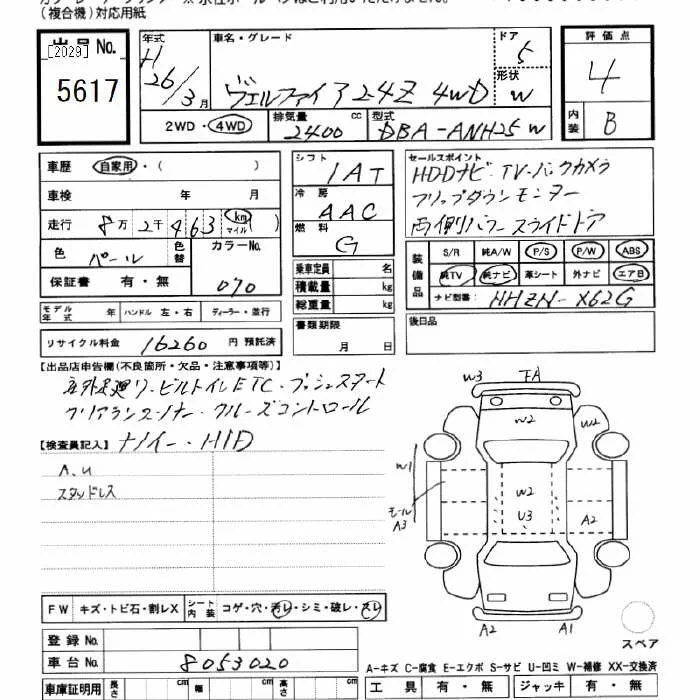 (複合機)対応用紙
出品No.
[2029]
5617
年式
H
26/3月
車名・グレード
ヴェルファイア 2.4Z 4WD
ドア
5
形状
W
評価点
4
内装
B
2WD・4WD
排気量
2400
cc
型式
DBA-ANH25W
車歴
自家用・( )
車検
年 月
走行
8万2千463
km
マイル
( )
色
パール
色替
カラーNo.
070
保証書 有・無
シフト
IAT
冷房
AAC
燃料
G
乗車定員 名
積載量 kg
総重量 kg
セールスポイント
HDDナビ・TV・バックカメラ
フリップダウンモニター
両側パワースライドドア
装備品
S/R 純A/W P/S P/W ABS
純TV 純ナビ 革シート 外ナビ エアB
ナビ型番: NHZN-X62G
モデル年式 年 ハンドル 左・右 ディーラー・並行
書類期限
月 日
後日品
リサイクル料金 16260 円 預託済
【出品店申告欄(不良箇所・欠品・注意事項等)】
ビルトインETC・プッシュスタート
クリアランスソナー・クルーズコントロール
【検査員記入】
HID
A.U
スタッドレス
W3
FA
W2
W2
W1
W2
U3
モール
A3
A2
A2
A1
スペア
FW キズ・トビ石・割レX シート内装 コゲ・穴・汚レ・シミ・破レ・スレ
登録No.
車台No.
8053020
A-キズ C-腐食 E-エクボ S-サビ U-凹ミ W-補修 XX-交換済
車庫証明用 長さ cm 幅 cm 高さ cm
工具 有・無 ジャッキ 有・無